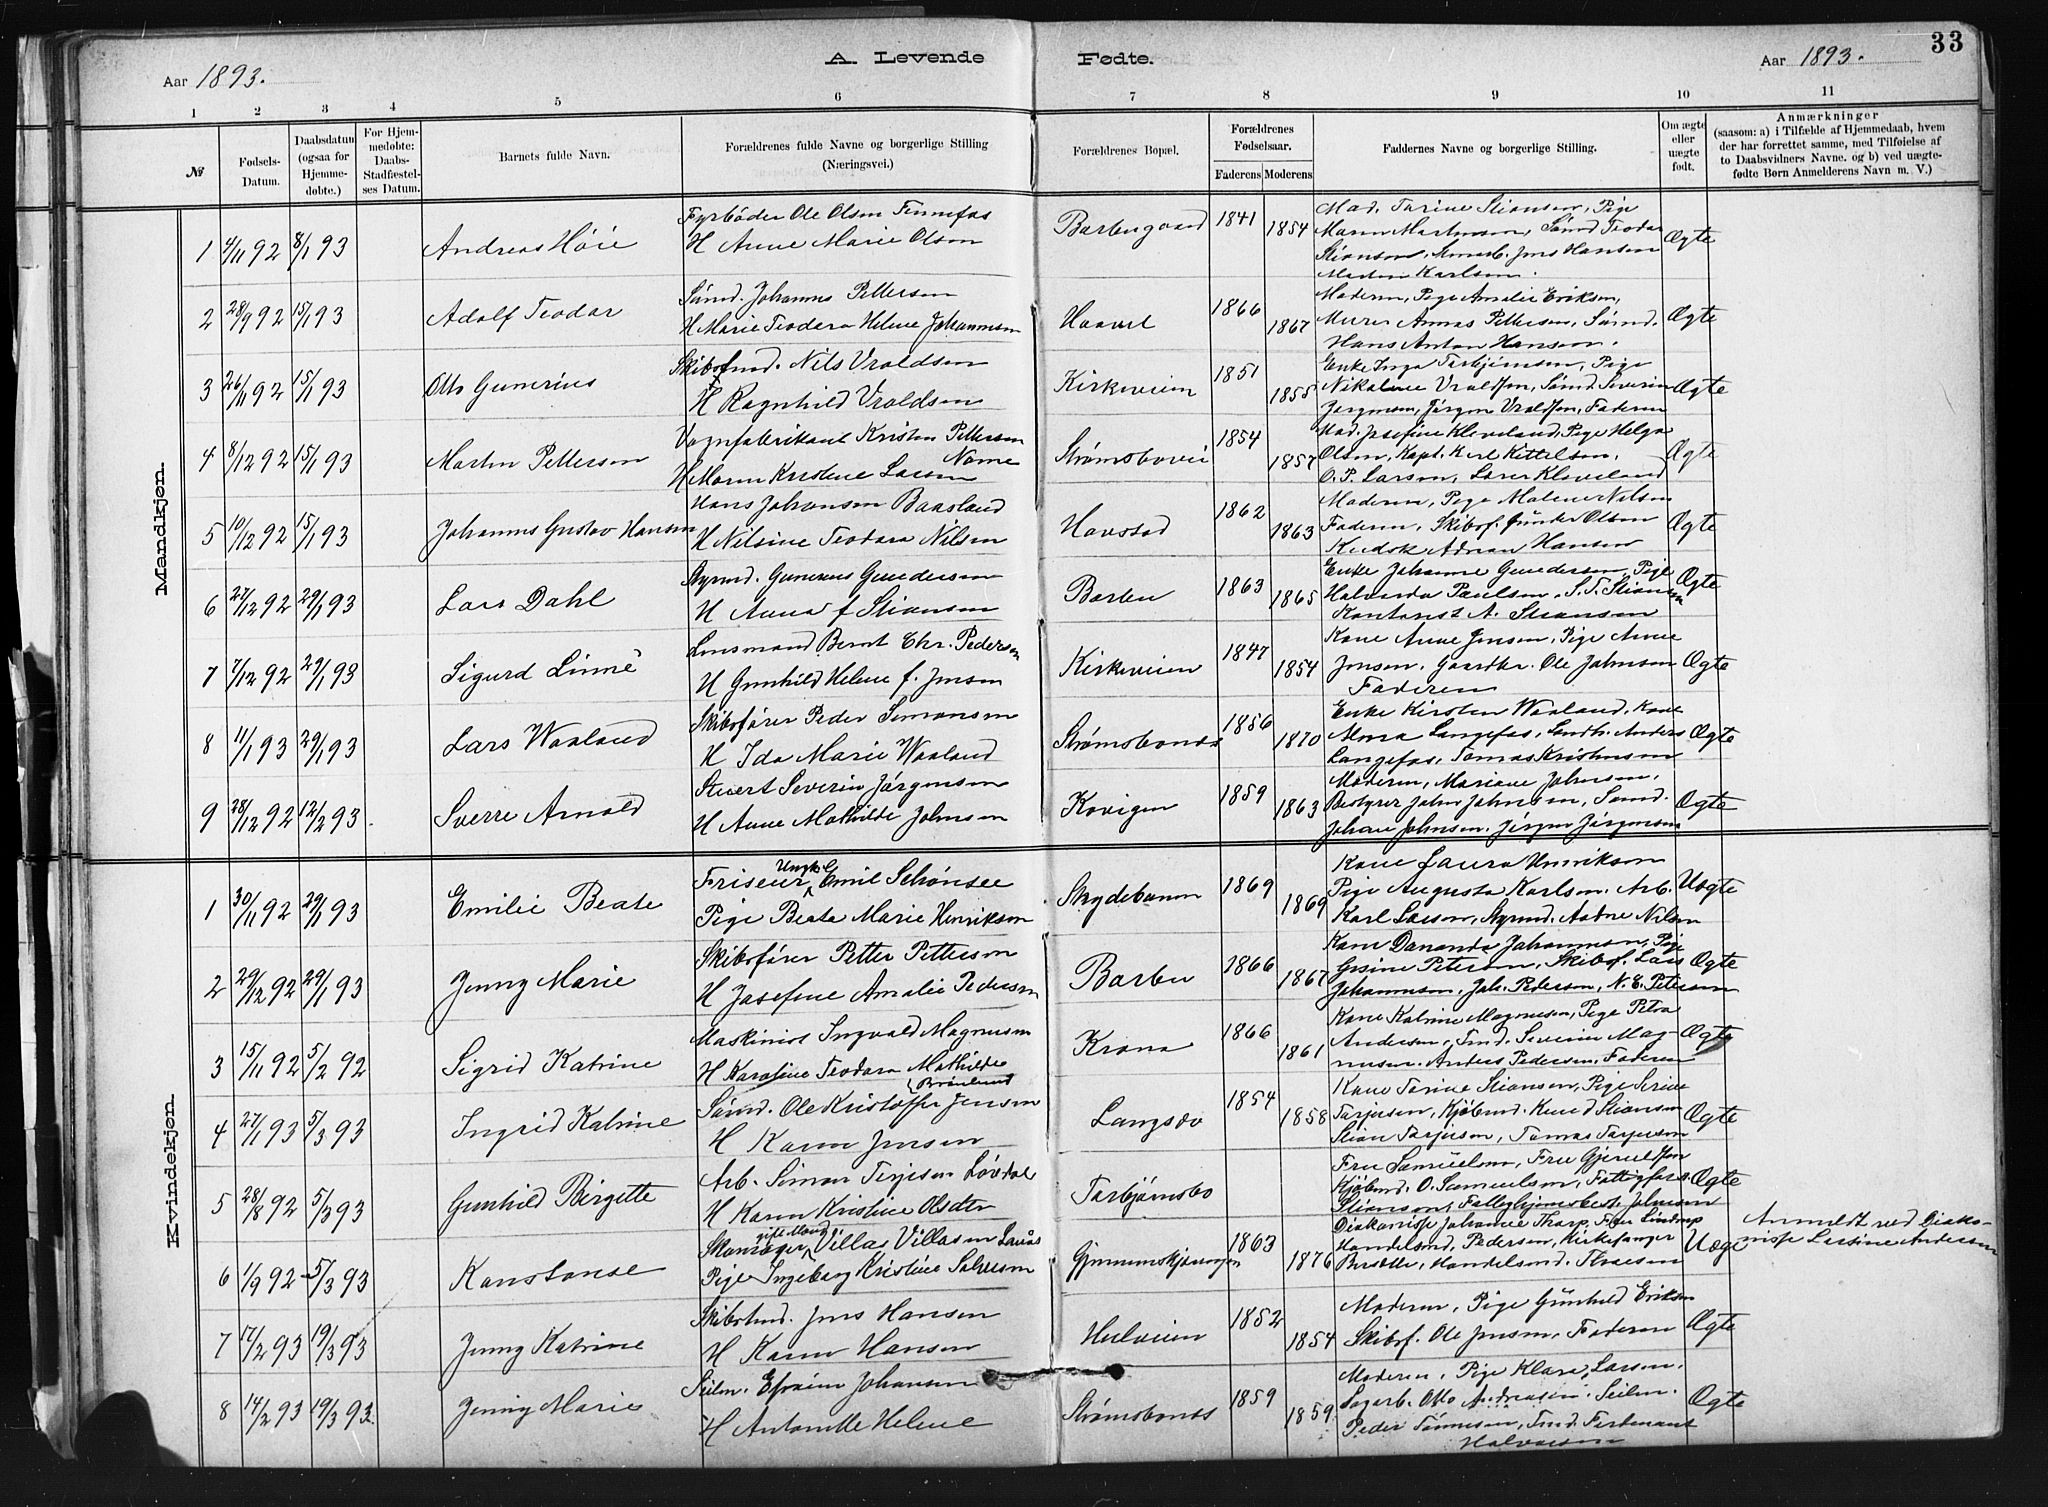 33
A. Levende Fødte.
Aar 1893.
Aar 1893.
1 2 3 4 5 6 7 8 9 10 11
№
Fødsels-Datum.
Daabsdatum (ogsaa for Hjemmedøbte.)
For Hjemmedøbte: Daabs-Stadfæstelses Datum.
Barnets fulde Navn.
Forældrenes fulde Navne og borgerlige Stilling (Næringsvei.)
Forældrenes Bopæl.
Forældrenes Fødselsaar.
Faderens Moderens
Faddernes Navne og borgerlige Stilling.
Om ægte eller uægte født.
Anmærkninger
(saasom: a) i Tilfælde af Hjemmedaab, hvem der har forrettet samme, med Tilføielse af to Daabsvidners Navne. og b) ved uægtefødte Børn Anmelderens Navn m. V.)
Mandkjøn.
1 4/11 92 8/1 93 Andreas Høie
Fyrbøder Ole Olsen Tennefos
H Anne Marie Olsen
Barbugaard 1841 1854
Mad. Tarine Stiansen, Pige
Maren Martinsen, Sømd Teodar
Stiansen, Jens Hansen
Martin Karlsen.
Ægte
2 28/9 92 15/1 93 Adolf Teodar
Sømd. Johannes Pettersen
H Marie Teodora Helene Johannesen
1866 1867
Moderen, Pige Amalie Eriksen,
Murer Annas Pettersen, Sømd.
Hans Anton Hansen.
Ægte
3 26/11 92 15/1 93 Otto Gunerius
Nils Vraldsen
H Ragnhild Vraldsen
Kirkeveien 1851 1855
Enke Inga Tarbjørnsen, Pige
Nikoline Vraldsen, Sømd. Severin
Jørgensen, Jørgen Vraldsen, Faderen
Ægte
4 8/12 92 15/1 93 Martin Pettersen
Vognfabrikant Kristen Pettersen
Næme
H Maren Kristine Larsen
Strømsbovei 1854 1857
Mad. Josefine Kleveland, Pige Helga
Olsen, Kapt. Karl Kittelsen,
O. P. Larsen, Lærer Kleveland
Ægte
5 10/12 92 15/1 93 Johannes Gustav Hansen
Hans Johansen Baasland
H Nilsine Teodora Nilsen
Havstad 1862 1863
Moderen, Pige Malene Nilsen
Faderen, Skibsf. Gunder Olsen
Kudsk Adrian Hansen
Ægte
6 27/12 92 29/1 93 Lars Dahl
Styrmd. Gunerius Gundersen
H Anna f Stiansen
Barbu 1863 1865
Enke Johanne Gundersen, Pige
Halvarda Paulsen, S. T. Stiansen
Kontorist A. Stiansen
Ægte
7 7/12 92 29/1 93 Sigurd Linné
Lensmand Bernt Chr. Pedersen
H Gunhild Helene f. Jensen
Kirkeveien 1847 1854
Kone Anne Jensen, Pige Anne
Jensen, Gaardbr. Ole Johnsen
Faderen
Ægte
8 11/1 93 29/1 93 Lars Waaland
Skibsfører Peder Simonsen
H Ida Marie Waaland
Strømsbonæs 1856 1870
Enke Kirsten Waaland, Kone
Langefos, Anders
Langefos, Tomas Kristensen
Ægte
9 28/12 92 12/2 93. Sverre Arnold
Stuert Severin Jørgensen
H Anne Mathilde Johnsen
Kovigen 1859 1863
Moderen, Mariane Johnsen,
Bestyrer John Johnsen, Sømd.
Johan Johnsen, Jørgen Jørgensen
Ægte
Kvindekjøn.
1 30/11 92 29/1 93 Emilie Beate
Ungk.
Friseur Emil Schønsee
Pige Beata Marie Henriksen
Skydebanen 1869 1869
Kone Laura Henriksen
Pige Augusta Karlsen, Arb.
Karl Larsen, Styrmd. Nilsen
Uægte
2 29/12 92 29/1 93 Jenny Marie
Skibsfører Petter Pettersen
H Josefine Amalie Pedersen
Barbu 1866 1867
Kone Johannesen, Pige
Gusine Petersen, Skibsf. Lars
Johannesen, Joh. Pedersen, N. E. Petersen
Ægte
3 15/11 92 5/2 92 Sigrid Katrine
Maskinist Ingvald Magnusen
H Karoline Teodora Mathilde
Krana 1866 1861
Kone Katrine Magnusen, Pige Petra
Andersen, Tmd. Severin Mag-
nusen, Anders Pedersen, Faderen
Ægte
4 27/1 93 5/3 93 Ingrid Katrine
Sømd. Ole Kristoffer Jensen
H Karen Jensen
Langsæv 1854 1858
Kone Tarine Stiansen, Pige Serine
Tarjusen, Kjøbmd. Knud Stiansen
Stian Tarjusen, Tomas Tarjusen
Ægte
5 28/8 92 5/3 93 Gunhild Birgitte
Arb. Simon Terjesen Løvdal
H Karen Kristine Olsdtr
Tarbjørnsbo
Fru Samuelsen, Fru Gjeruldsen
Kjøbmd. O. Samuelsen, Fattigfors.
Stianson, Fattighjemsbest. Johnsen
Ægte
6 1/9 92 5/3 93 Konstanse
gift Mand
Skomager Villas Villasen
Pige Ingeborg Kristine Salvesen
1863 1876
Diakonisse Johanne Tharp, Frk Lindrup
Handelsmd. Pedersen, Kirkesanger
Handelsmd.
Uægte
Anmeldt ved Diako-
nisse Andersen
7 17/2 93 19/3 93 Jenny Katrine
Skibstmd. Jens Hansen
H Karen Hansen
Hulveien 1852 1854
Moderen, Pige Gunhild Eriksen
Skibsf. Ole Jensen, Faderen
Ægte
8 14/2 93 19/3 93. Jenny Marie
Seilm. Efraim Johansen
H Antonette Helene
Strømsbonæs 1859 1859
Moderen, Pige Klara Larsen,
Otto Andreasen, Seilm.
Peder Tønnesen, Tmd. Ferdenant
Halvorsen
Ægte